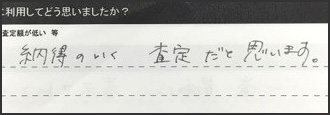 :利用してどう思いましたか？
査定額が低い 等
納得のいく 査定だと思います。